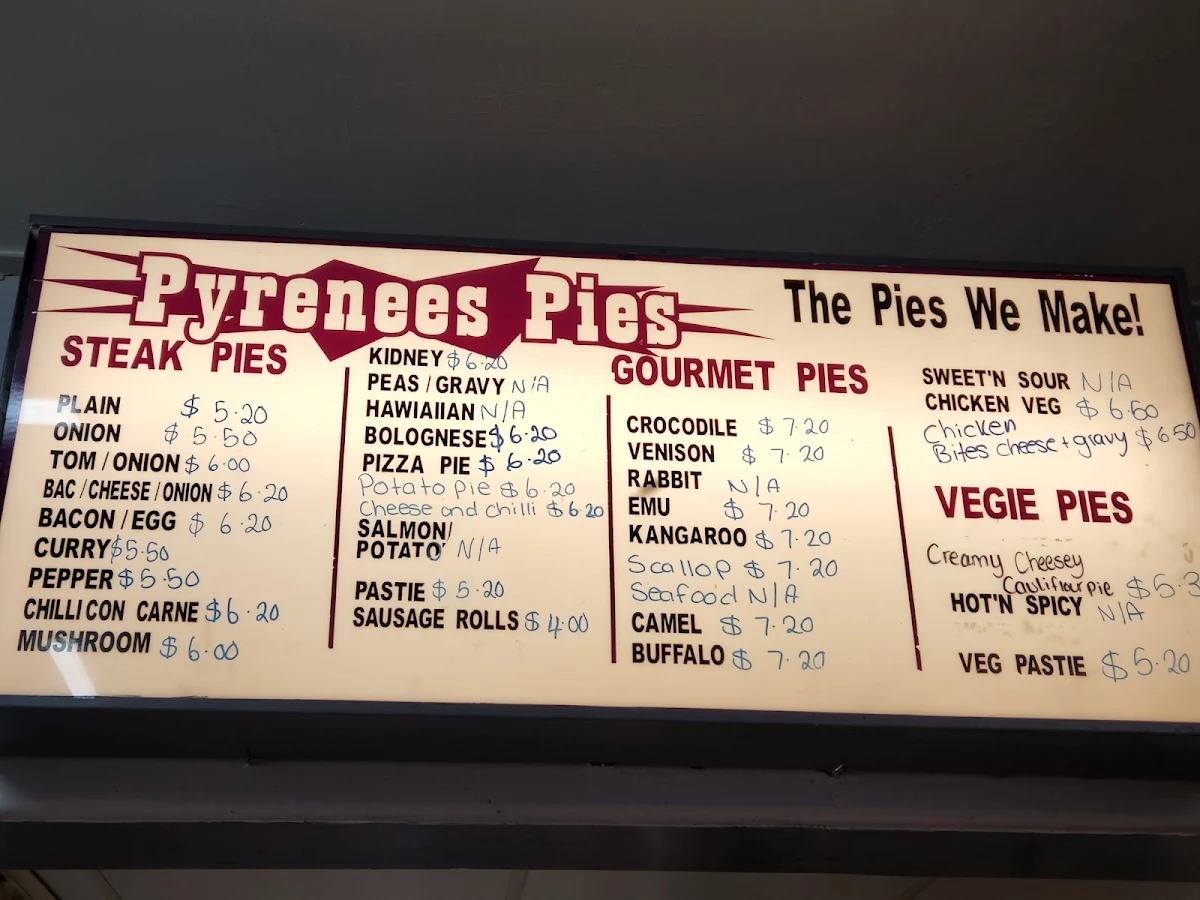 Pyrenees Pies
The Pies We Make!
STEAK PIES
PLAIN $ 5.20
ONION $ 5.50
TOM / ONION $ 6.00
BAC / CHEESE / ONION $ 6.20
BACON / EGG $ 6.20
CURRY $5.50
PEPPER $5.50
CHILLI CON CARNE $6.20
MUSHROOM $ 6.00
KIDNEY $6.20
PEAS / GRAVY N/A
HAWIAIIAN N/A
BOLOGNESE $6.20
PIZZA PIE $ 6.20
Potato pie $ 6.20
Cheese and chilli $6.20
SALMON/
POTATO N/A
PASTIE $ 5.20
SAUSAGE ROLLS $ 4.00
GOURMET PIES
CROCODILE $ 7.20
VENISON $ 7.20
RABBIT N/A
EMU $ 7.20
KANGAROO $ 7.20
Scallop $ 7.20
Seafood N/A
CAMEL $ 7.20
BUFFALO $ 7.20
SWEET'N SOUR N/A
CHICKEN VEG $ 6.60
Chicken
Bites cheese + gravy $ 6.50
VEGIE PIES
Creamy Cheesey
Cauliflour pie
HOT'N SPICY N/A
VEG PASTIE $5.20